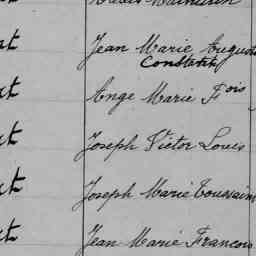 Jean Marie Auguste
Constant
Ange Marie Fois
Joseph Victor Louis
Joseph Marie Toussaint
Jean Marie Francois